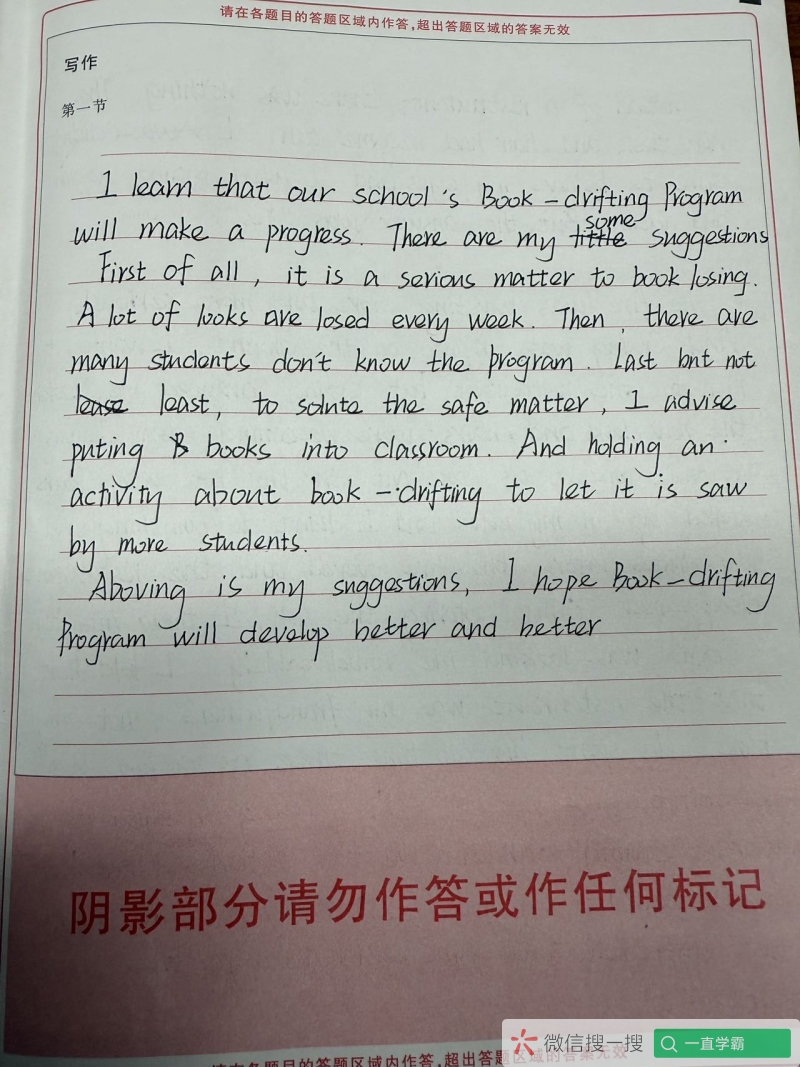 请在各题目的答题区域内作答,超出答题区域的答案无效
写作
第一节
I learn that our school's Book-drifting Program
will make a progress. There are my some suggestions
First of all, it is a serious matter to book losing.
A lot of looks are losed every week. Then, there are
many students don't know the program. Last but not
least, to solute the safe matter, I advise
puting B books into classroom. And holding an
activity about book-drifting to let it is saw
by more students.
Aboving is my suggestions, I hope Book-drifting
Program will develop better and better
阴影部分请勿作答或作任何标记
微信搜一搜 一直学霸
请在各题目的答题区域内作答,超出答题区域的答案无效